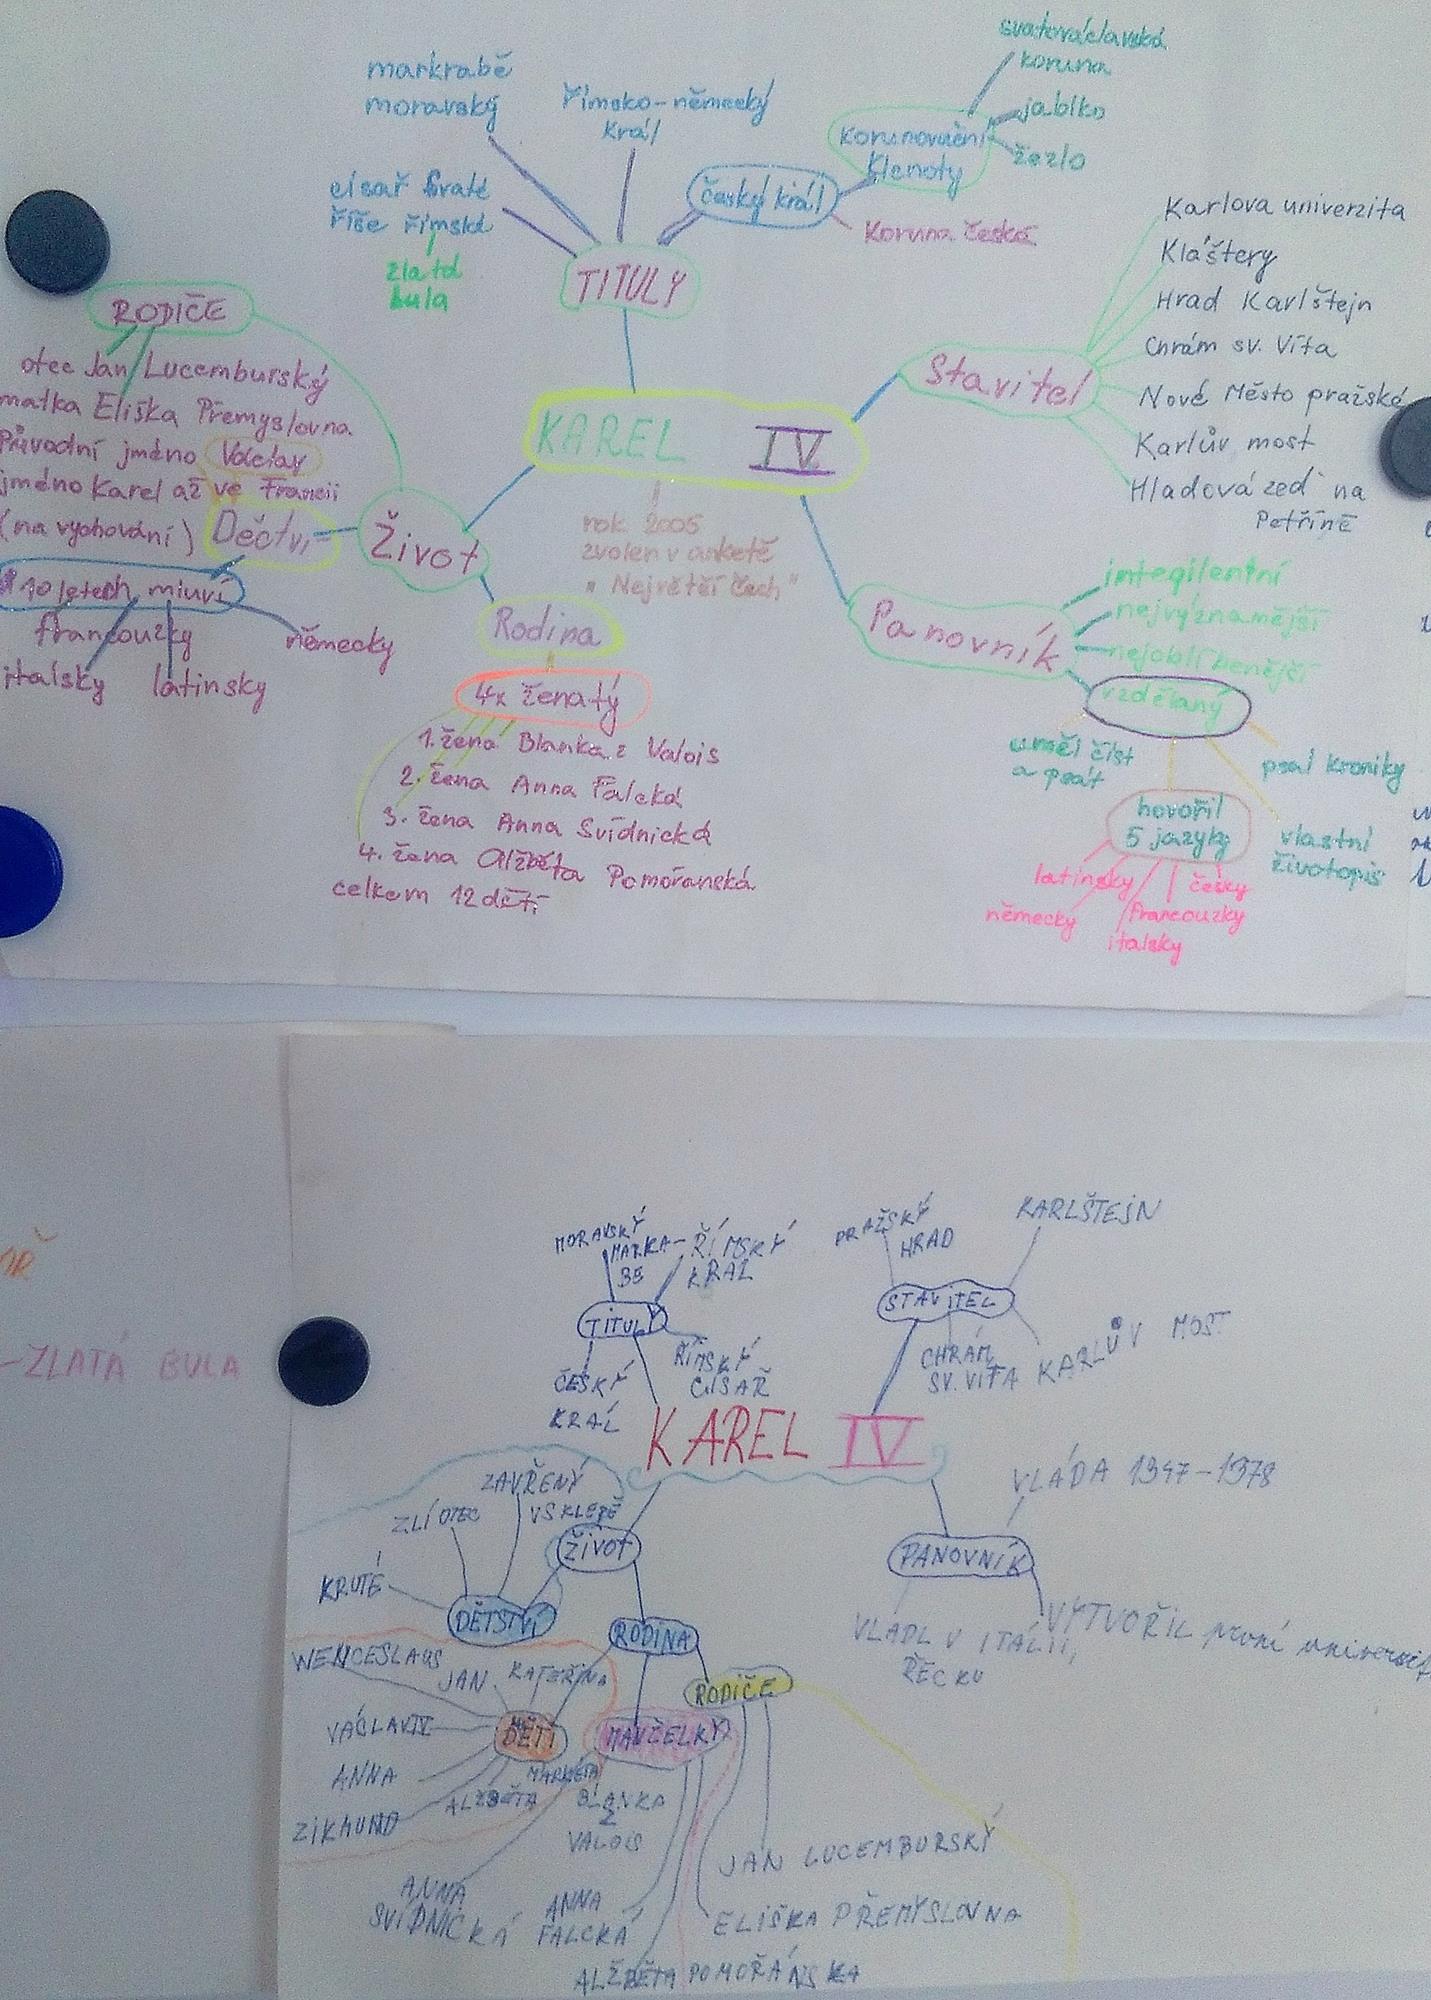 svatováclavská
koruna
jablko
žezlo
korunovační
klenoty
markrabě
moravský
římsko-německý
král
český král
Koruna česká
císař Svaté
říše římské
zlatá
bula
TITULY
RODIČE
otec Jan Lucemburský
matka Eliška Přemyslovna
Původní jméno Václav
jméno Karel až ve Francii
(na vychování)
Děctví
Život
10 letech mluví
francouzky
německy
italsky
latinsky
KAREL IV.
rok 2005
zvolen v anketě
"Největší Čech"
Rodina
4x ženatý
1. žena Blanka z Valois
2. žena Anna Falcká
3. žena Anna Svídnická
4. žena Alžběta Pomořanská
celkem 12 dětí
Stavitel
Karlova univerzita
Kláštery
Hrad Karlštejn
Chrám sv. Víta
Nové Město pražské
Karlův most
Hladová zeď na
Petříně
Panovník
integilentní
nejvýznamější
nejoblíbenější
vzdělaný
uměl číst
a psát
psal kroniky
hovořil
5 jazyky
vlastní
životopis
latinsky
česky
německy
francouzky
italsky
ZLATÁ BULA
MORAVSKÝ
MARKA-
BE
ŘÍMSKÝ
KRÁL
TITULY
ČESKÝ
KRÁL
ŘÍMSKÝ
CÍSAŘ
PRAŽSKÝ
HRAD
KARLŠTEJN
STAVITEL
CHRÁM
SV. VÍTA
KARLŮV MOST
KAREL IV
ZAVŘENÝ
VSKLEPĚ
ZLÍ OTEC
KRUTÉ
ŽIVOT
DĚTSTVÍ
RODINA
RODIČE
WENCESLAUS
JAN
KATEŘINA
VÁCLAV IV
DĚTI
MANŽELKY
ANNA
MARKÉTA
ALŽBĚTA
ZIKMUND
BLANKA
Z
VALOIS
ANNA
SVÍDNICKÁ
ANNA
FALCKÁ
JAN LUCEMBURSKÝ
ELIŠKA PŘEMYSLOVNA
ALŽBĚTA POMOŘÁNSKA
VLÁDA 1347-1378
PANOVNÍK
VLÁDL V ITÁLII,
ŘECKU
VYTVOŘIL první